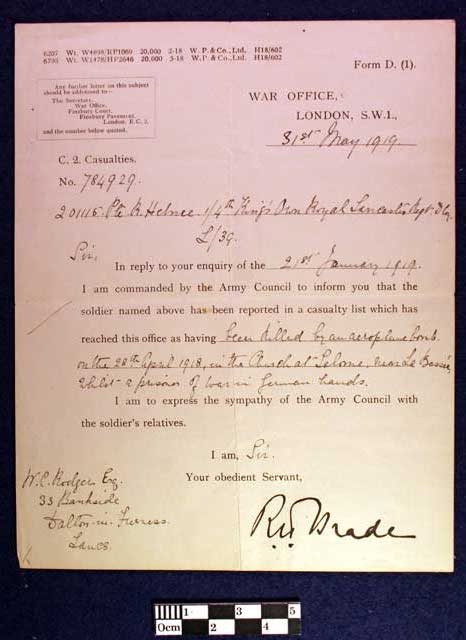 6207 Wt. W4898/RP1069 20,000 2-18 W. P. & Co., Ltd. H18/602
6795 Wt. W1478/HP2646 20,000 5-18 W. P. & Co., Ltd. H18/602
Form D. (1).
Any further letter on this subject
should be addressed to—
The Secretary,
War Office,
Finsbury Court,
Finsbury Pavement,
London. E.C. 2.
and the number below quoted.
WAR OFFICE,
LONDON, S.W.1.,
31st May 1919.
C. 2. Casualties.
No. 784929.
201115. Pte. 1/4th King's Own Royal Lancaster Regt. D Coy.
Sir,
In reply to your enquiry of the 21st January 1919.
I am commanded by the Army Council to inform you that the
soldier named above has been reported in a casualty list which has
reached this office as having been killed by an aeroplane bomb
on the 28th April 1918, in the Church at Salome, near La Bassée,
whilst a prisoner of war in German hands.
I am to express the sympathy of the Army Council with
the soldier's relatives.
I am, Sir.
Your obedient Servant,
W.C. Rodger Esq.
33 Bankside
Dalton-in-Furness.
Lancs.
0cm 1 2 3 4 5